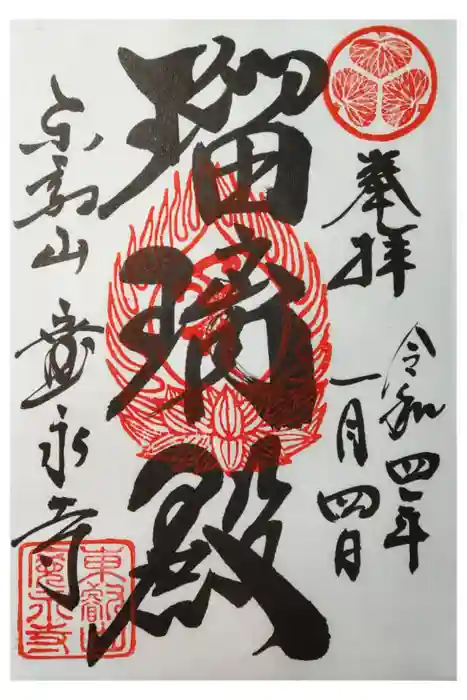 奉拝
令和四年
一月四日
瑠璃殿
東叡山 寛永寺
東叡山
寛永寺